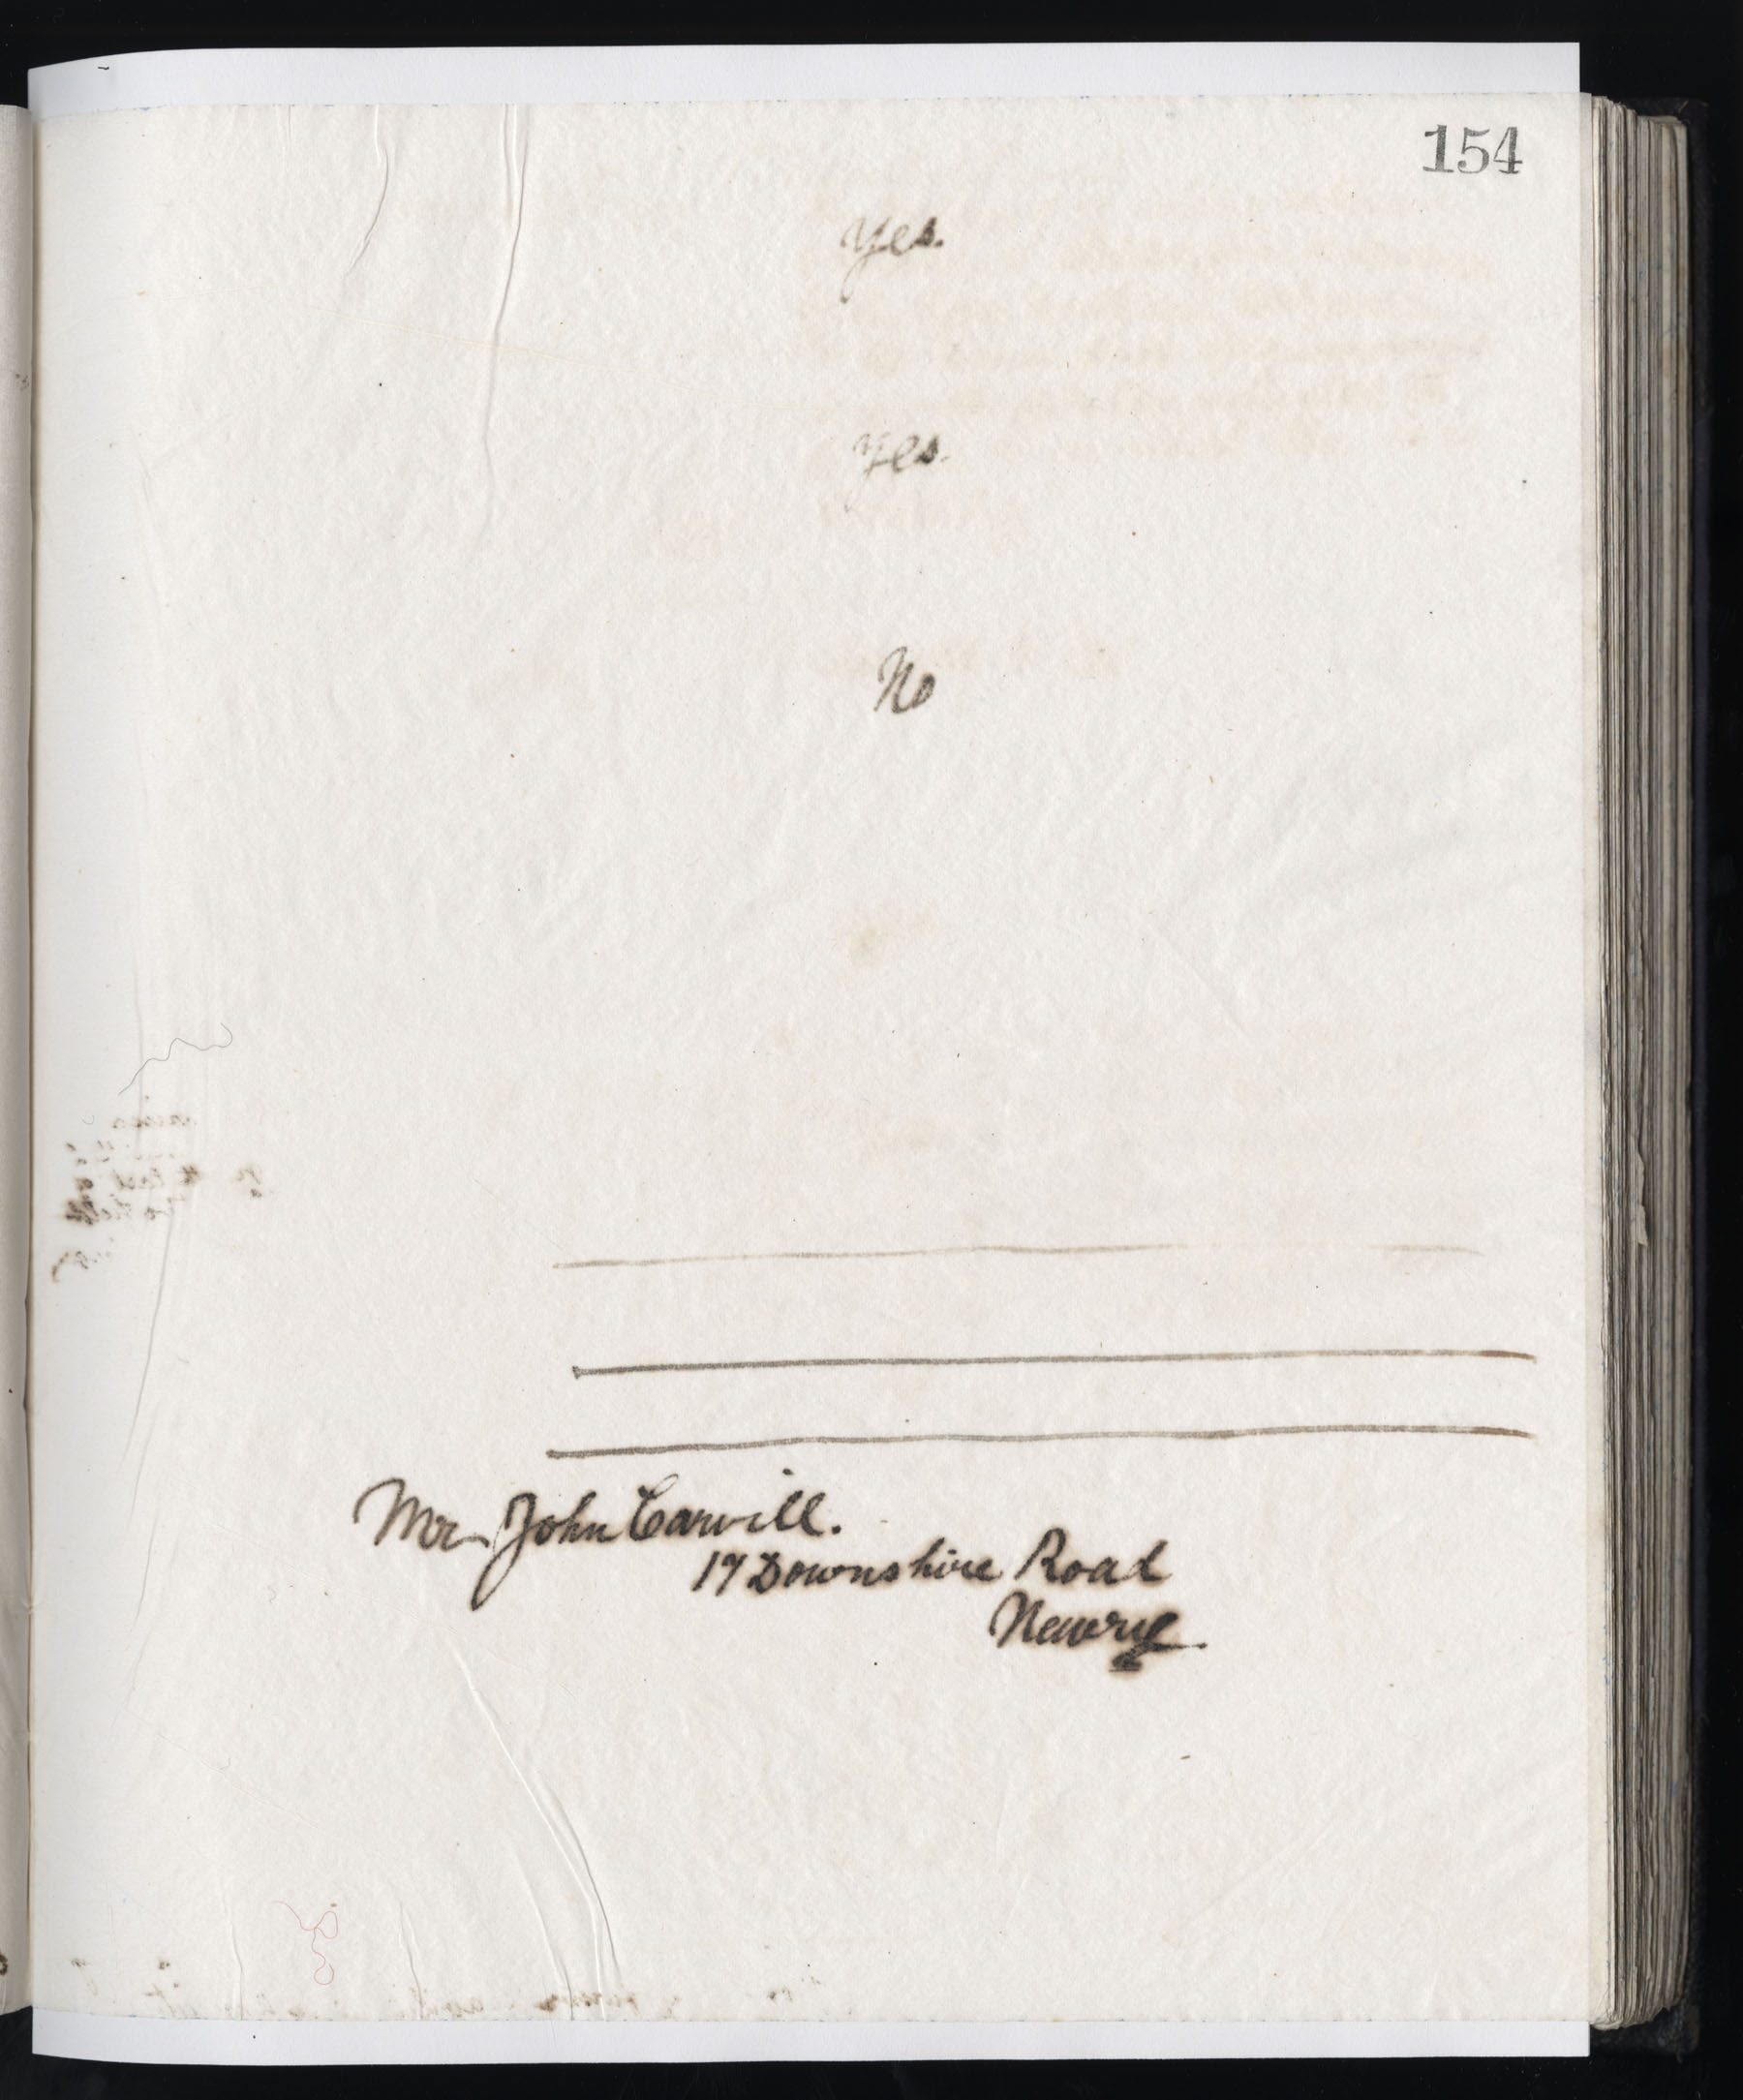 154
Yes.
Yes.
No
Mr John Carvill.
17 Downshire Road
Newry